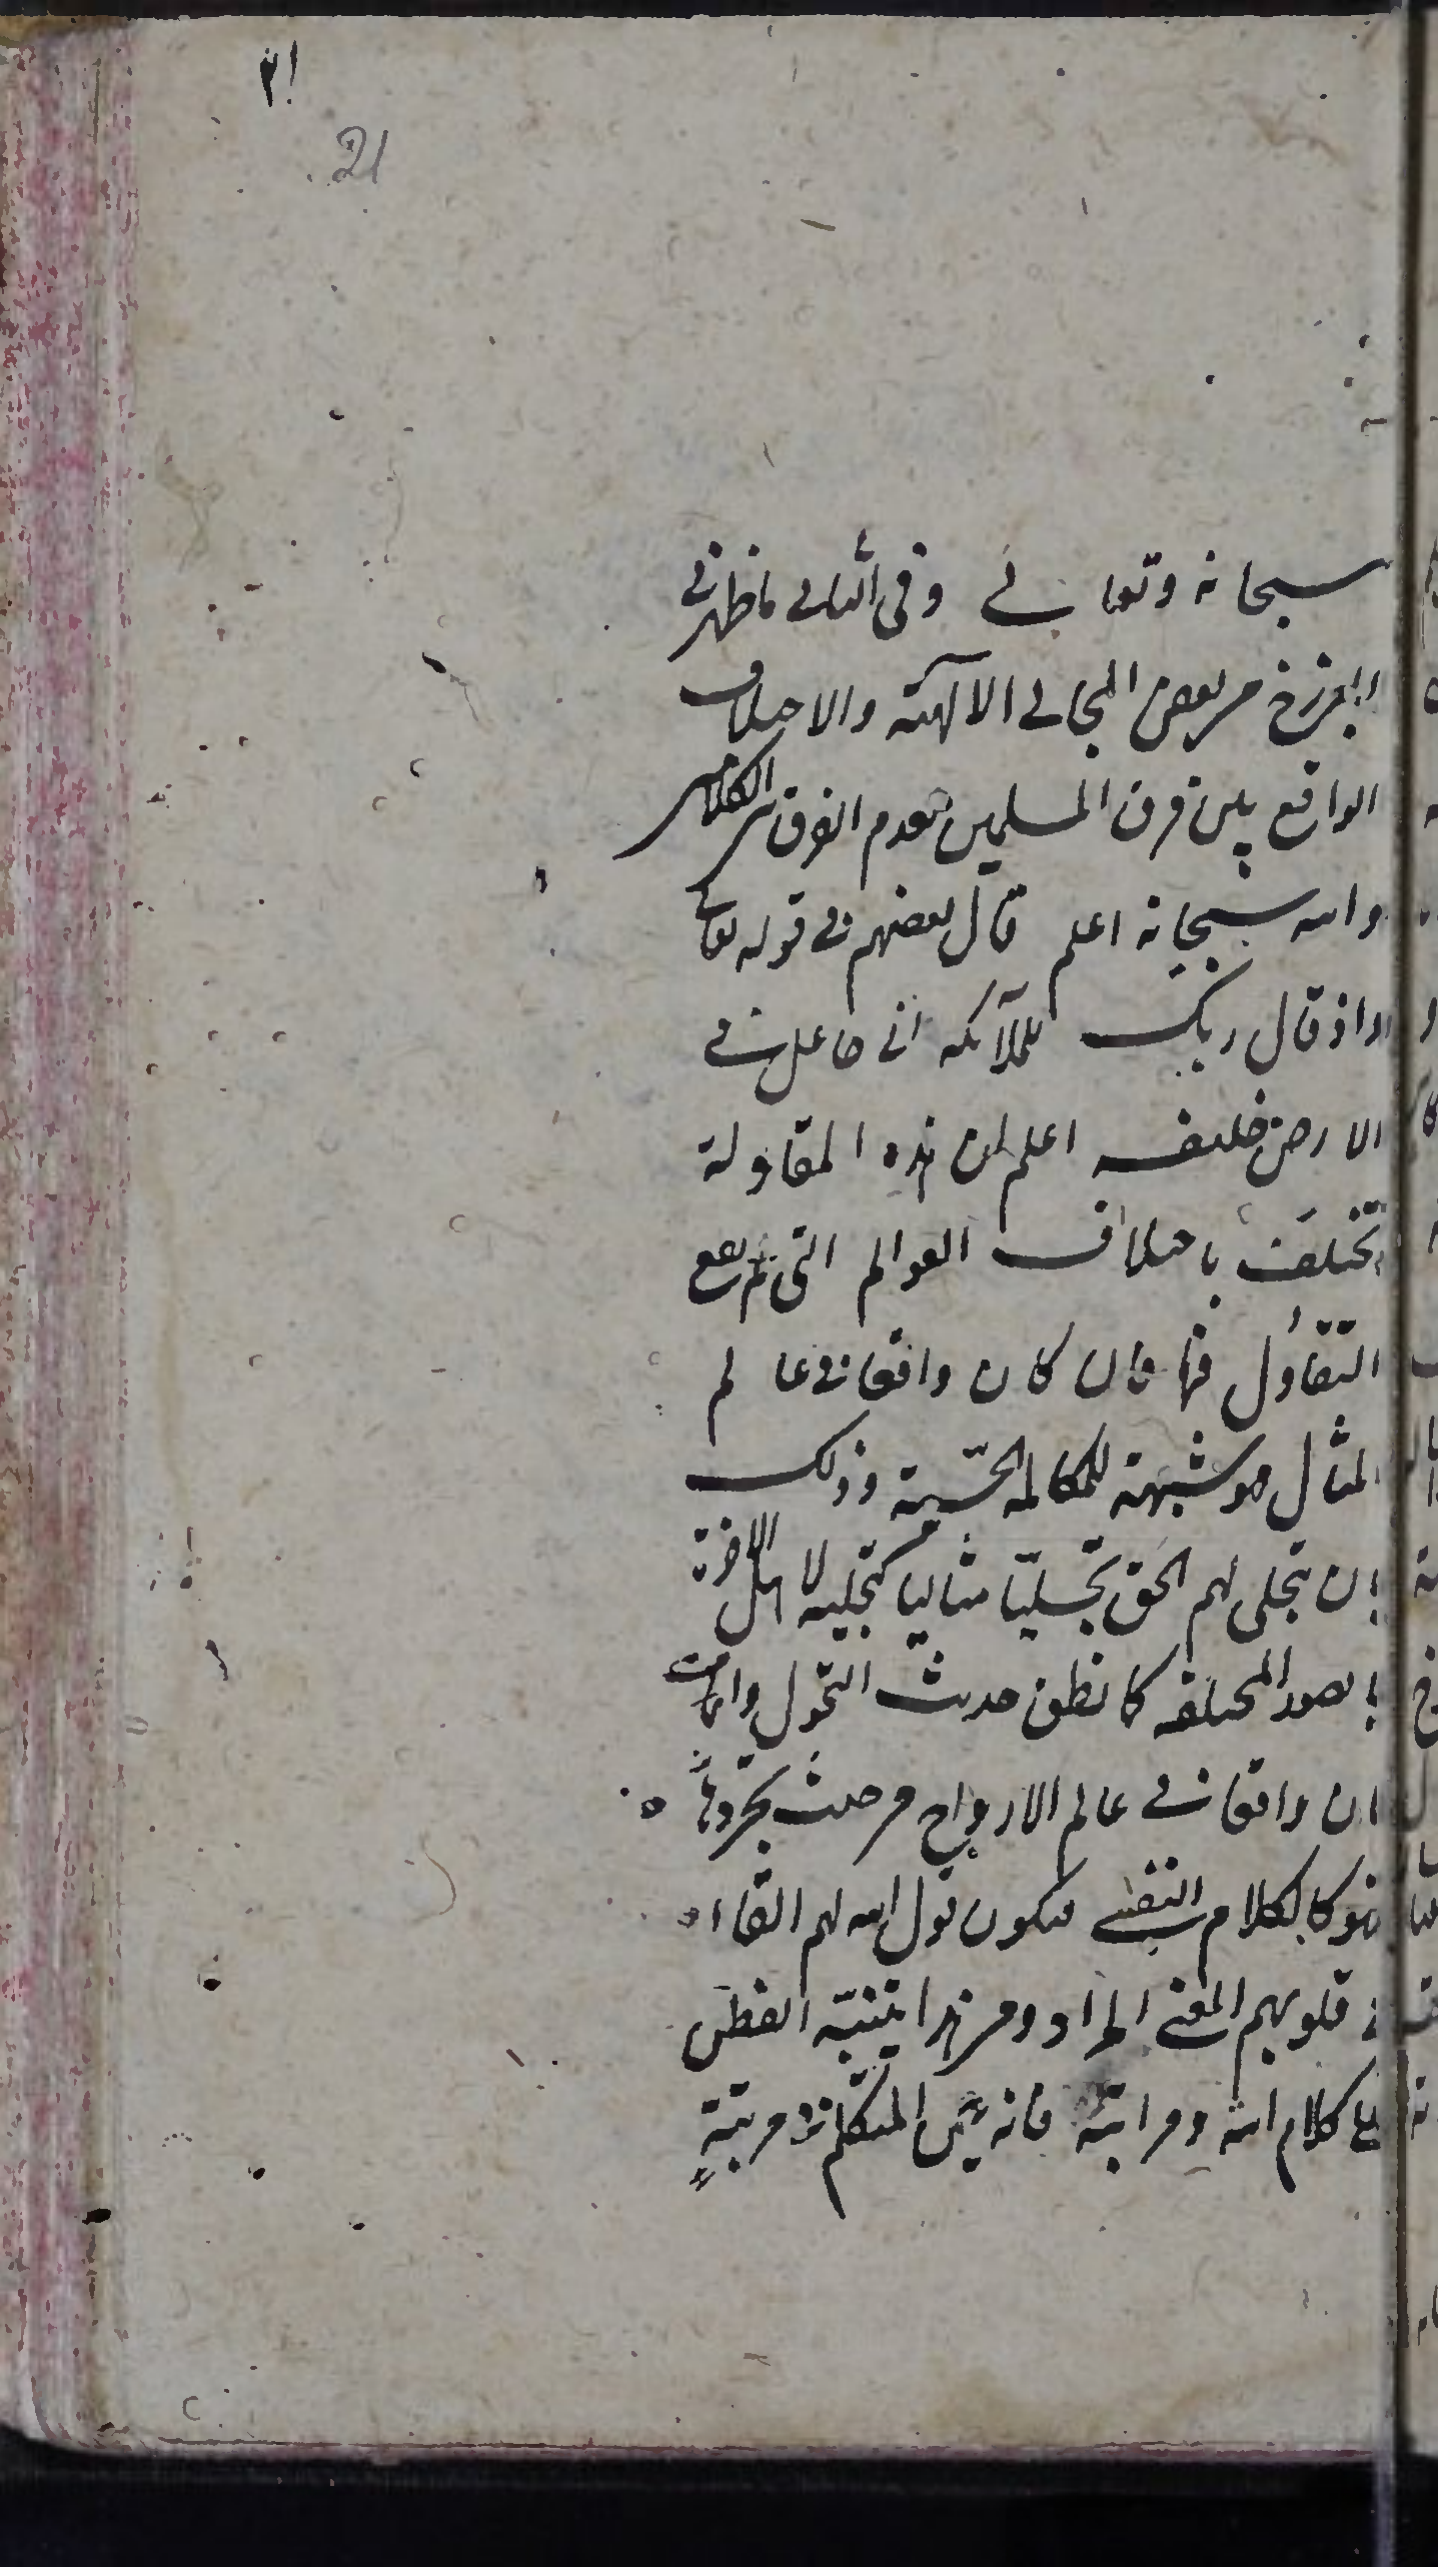 ٢١
21
سبحانه وتعالى وفى الثانى ما ظهر فى
البرزخ من بعض المجالى الالهية والاختلاف
الواقع بين فرق المسلمين لعدم الفرق بين الكلامين
والله سبحانه اعلم قال بعضهم فى قوله تعالى
واذ قال ربك للملآئكة انى جاعل فى
الارض خليفه اعلم ان هذه المقاولة
تختلف باختلاف العوالم التى يقع
التقاول فيها فان كان واقعا فى عالم
المثال فهو شبيهة للمكالمه الحسّية وذلك
بان يتجلى لهم الحق تجليّا مثاليا كتجليه لاهل الآخرة
بالصور المختلفه كما نطق حديث التحول وان
كان واقعا فى عالم الارواح من حيث تجردها
فهو كالكلام النفسى فيكون قول الله لهم القاءه
فى قلوبهم المعنى المراد ومن هذا يتنبّه الفطن
على كلام الله ومراتبه فانه عين المتكلم فى مرتبةٍ